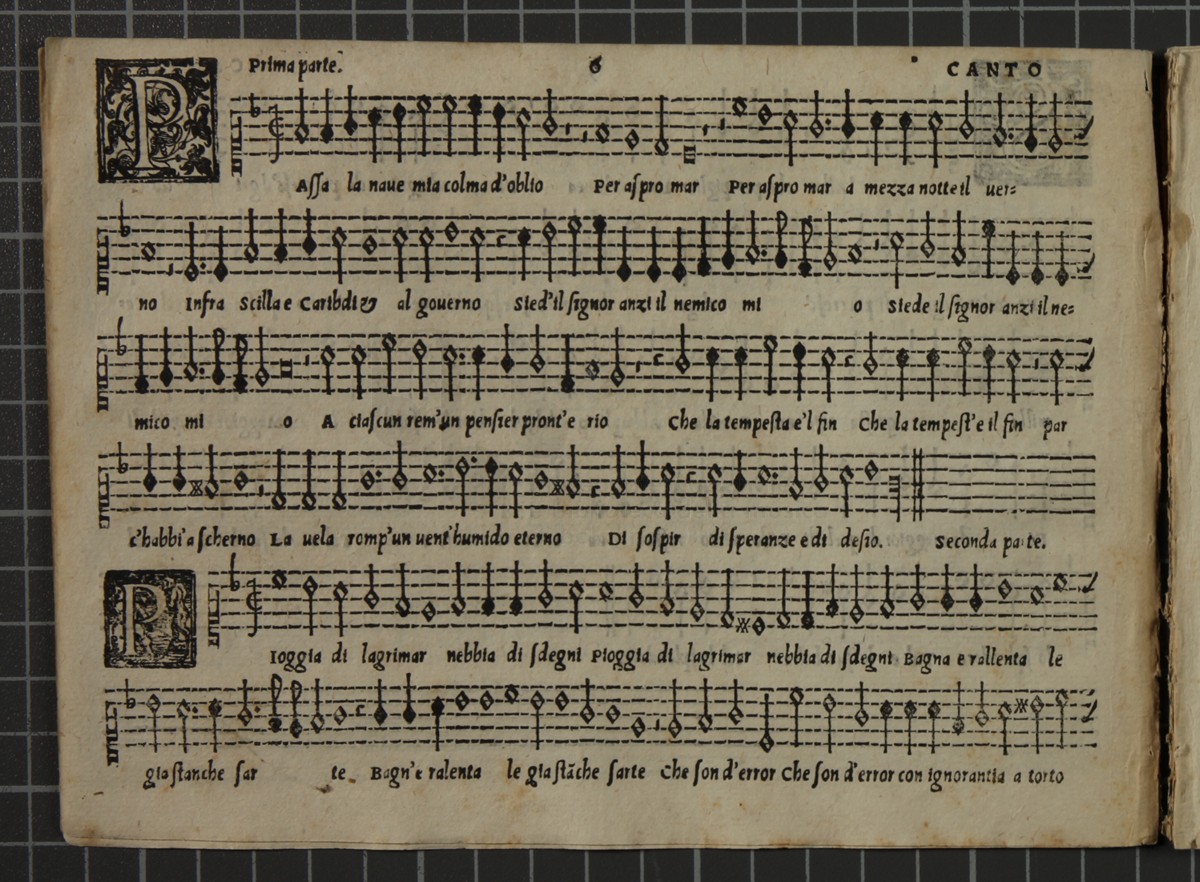 Prima parte. 6 CANTO
PAſſa la naue mia colma d'oblio Per aſpro mar Per aſpro mar a mezza notte il uer=
no Infra Scilla e Caribdi & al gouerno Sied'il ſignor anzi il nemico mi o Siede il ſignor anzi il ne=
mico mi o A ciaſcun rem'un penſier pront'e rio Che la tempeſta e'l fin Che la tempeſt'e il fin par
c'habbi'a ſcherno La uela romp'un uent'humido eterno Di ſoſpir di ſperanze e di deſio. Seconda parte.
PIoggia di lagrimar nebbia di ſdegni Pioggia di lagrimar nebbia di ſdegni Bagna e rallenta le
gia ſtanche ſar te Bagn'e ralenta le gia ſtāche ſarte Che ſon d'error Che ſon d'error con ignorantia a torto